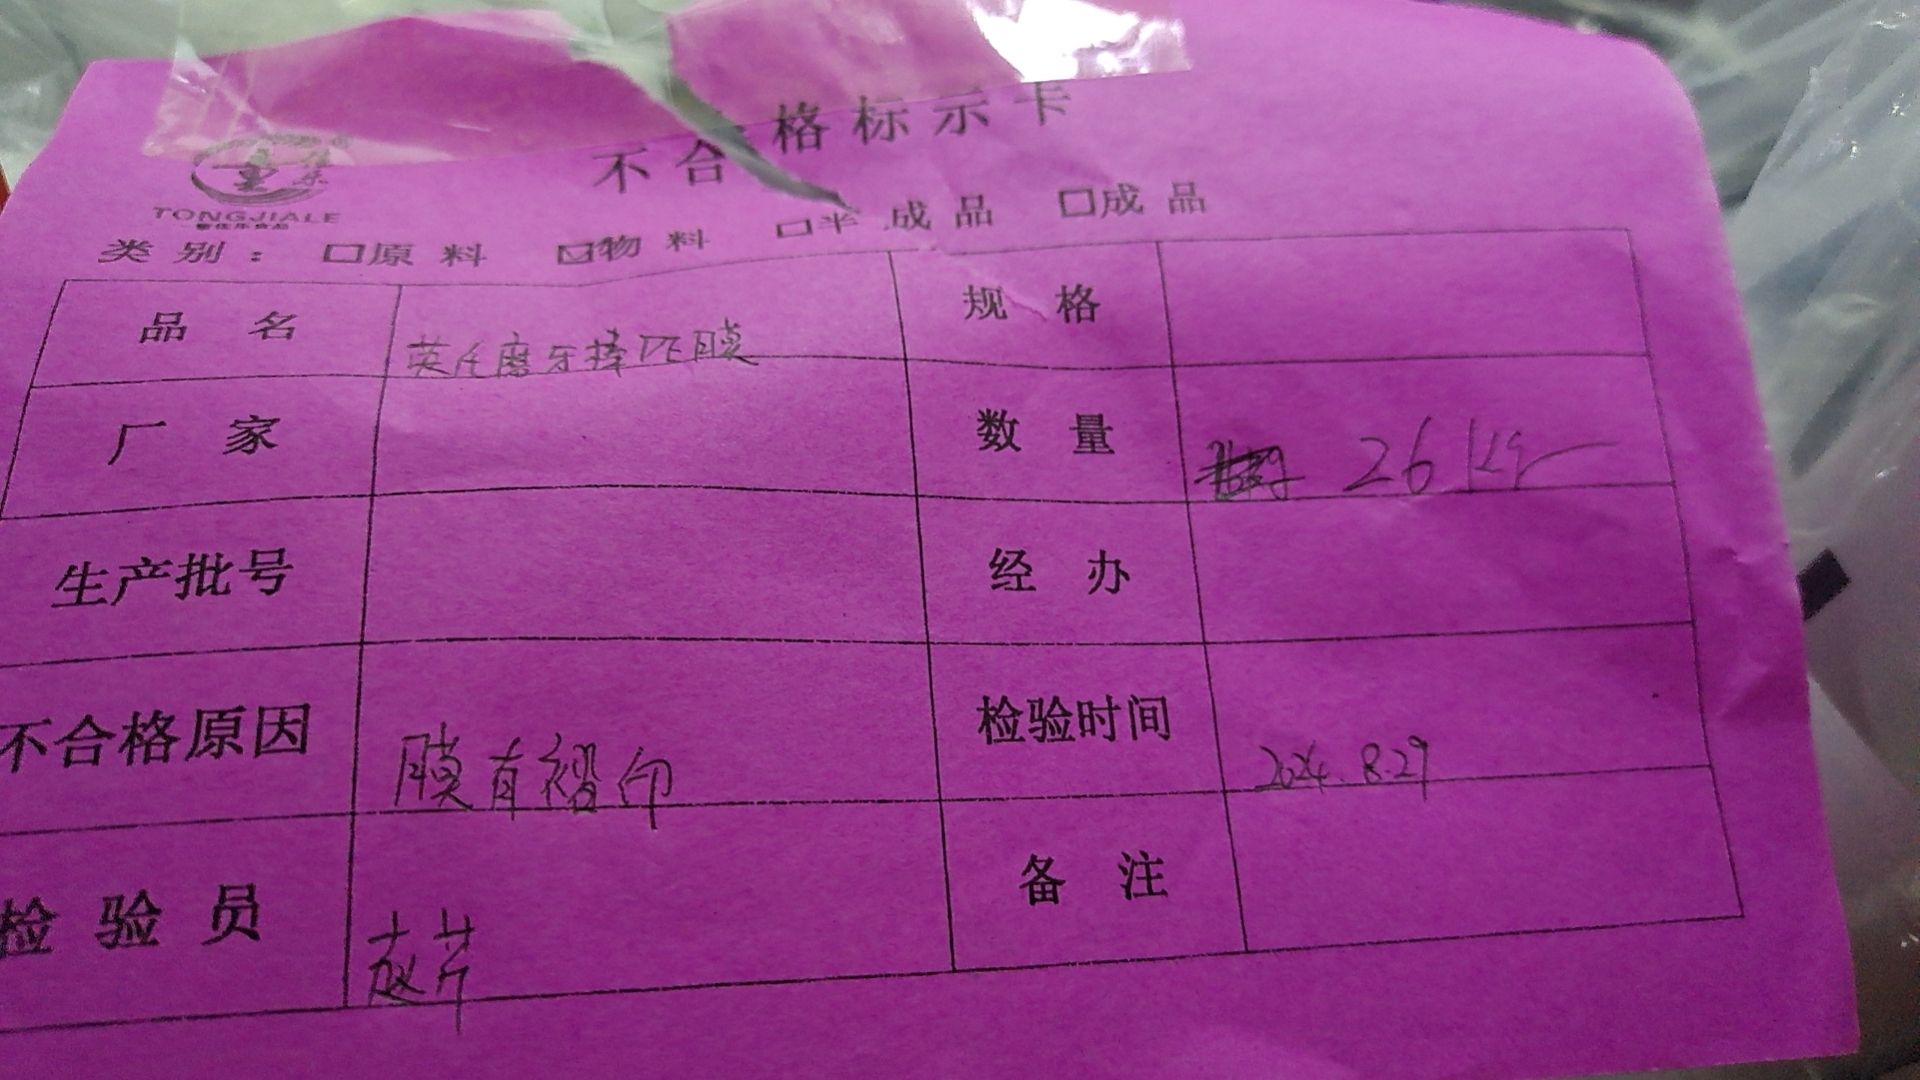 不合格标示卡
TONGJIALE
类别： □原料 ☑物料 □半成品 □成品
品名 英氏磨牙棒PE膜 规格
厂家 数量 26kg
生产批号 经办
不合格原因 膜有褶印 检验时间 2024.8.29
检验员 赵芹 备注